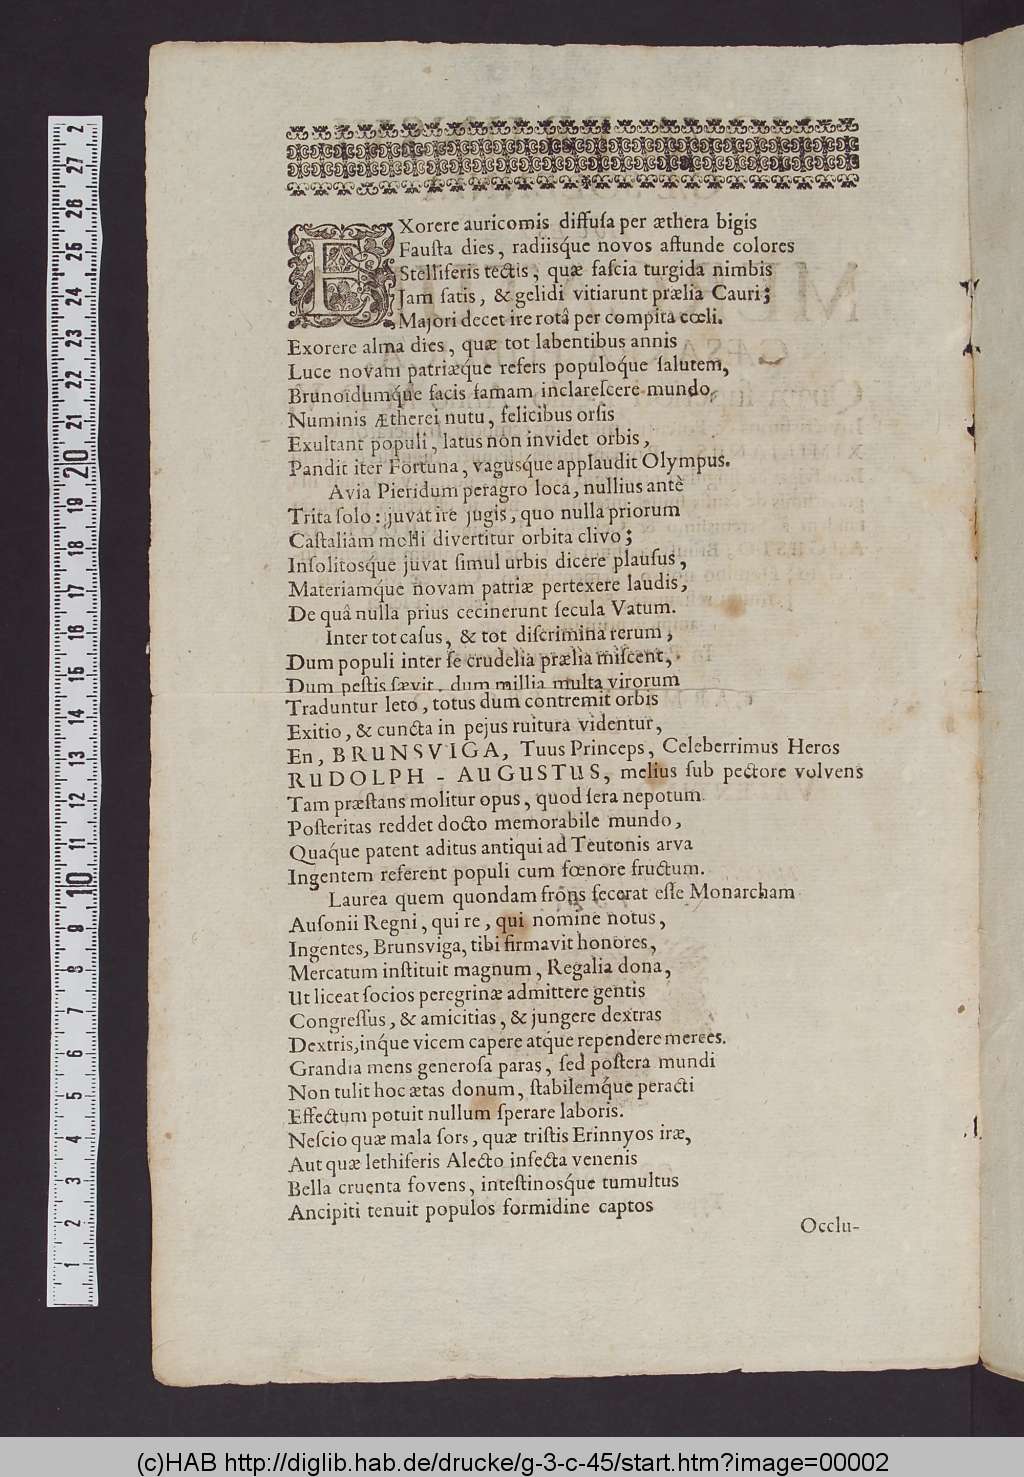 EXorere auricomis diffuſa per æthera bigis
Fauſta dies, radiisq́ue novos affunde colores
Stelliferis tectis, quæ faſcia turgida nimbis
Jam ſatis, & gelidi vitiarunt prælia Cauri;
Majori decet ire rotâ per compita cœli.
Exorere alma dies, quæ tot labentibus annis
Luce novam patriæq́ue refers populoq́ue ſalutem,
Brunoidumq́ue facis famam inclareſcere mundo.
Numinis Ætherei nutu, felicibus orſis
Exultant populi, latus non invidet orbis,
Pandit iter Fortuna, vagusq́ue applaudit Olympus.
Avia Pieridum peragro loca, nullius antè
Trita ſolo: juvat ire jugis, quo nulla priorum
Caſtaliam molli divertitur orbita clivo;
Inſolitosq́ue juvat ſimul urbis dicere plauſus,
Materiamq́ue novam patriæ pertexere laudis,
De quâ nulla prius cecinerunt ſecula Vatum.
Inter tot caſus, & tot diſcrimina rerum,
Dum populi inter ſe crudelia prælia miſcent,
Dum peſtis ſævit, dum millia multa virorum
Traduntur leto, totus dum contremit orbis
Exitio, & cuncta in pejus ruitura videntur,
En, BRUNSVIGA, Tuus Princeps, Celeberrimus Heros
RUDOLPH - AUGUSTUS, melius ſub pectore volvens
Tam præſtans molitur opus, quod ſera nepotum
Poſteritas reddet docto memorabile mundo,
Quaq́ue patent aditus antiqui ad Teutonis arva
Ingentem referent populi cum fœnore fructum.
Laurea quem quondam frons fecerat eſſe Monarcham
Auſonii Regni, qui re, qui nomine notus,
Ingentes, Brunsviga, tibi firmavit honores,
Mercatum inſtituit magnum, Regalia dona,
Ut liceat ſocios peregrinæ admittere gentis
Congreſſus, & amicitias, & jungere dextras
Dextris, inq́ue vicem capere atq́ue rependere merces.
Grandia mens generoſa paras, ſed poſtera mundi
Non tulit hoc ætas donum, ſtabilemq́ue peracti
Effectum potuit nullum ſperare laboris.
Neſcio quæ mala ſors, quæ triſtis Erinnyos iræ,
Aut quæ lethiferis Alecto infecta venenis
Bella cruenta fovens, inteſtinosq́ue tumultus
Ancipiti tenuit populos formidine captos
Occlu-
1 2 3 4 5 6 7 8 9 10 11 12 13 14 15 16 17 18 19 20 21 22 23 24 25 26 27 2
(c)HAB http://diglib.hab.de/drucke/g-3-c-45/start.htm?image=00002